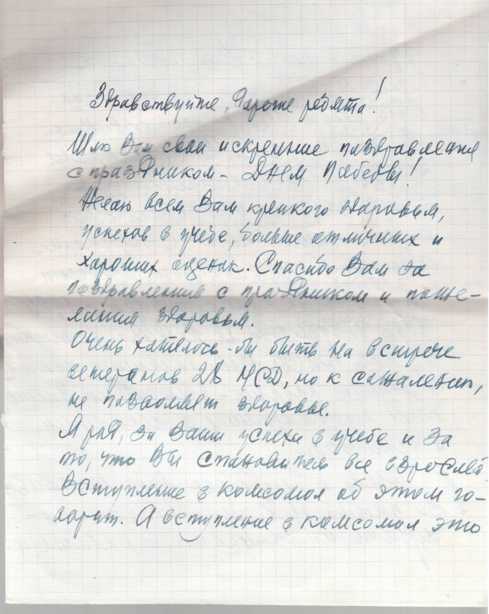 Здравствуйте, дороже ребята!
Шлю Вам свои искренние поздравления
с праздником - Днем Победы!
Желаю всем Вам крепкого здоровья,
успехов в учебе, больше отличных и
хороших оценок. Спасибо Вам за
поздравления с праздником и поже-
лания здоровья.
Очень хотелось-бы быть на встрече
ветеранов 28 МСД, но к сожалению,
не позволяет здоровье.
Я рад, за Ваши успехи в учебе и за
то, что Вы становитесь все взрослей.
Вступление в комсомол об этом го-
ворит. А вступление в комсомол это